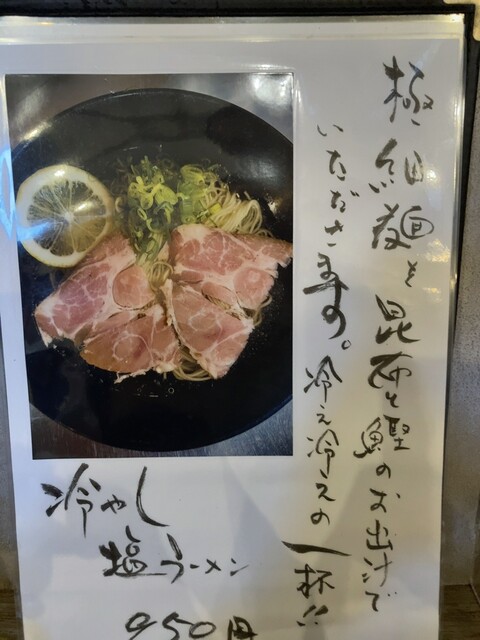 極細麺を昆布と鰹のお出汁で
いただきます。冷え冷えの
一杯!!
冷やし
塩ラーメン
950円